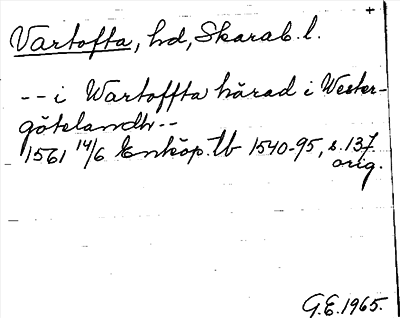 +
Vartofta, hd, Skarab. l.
-- i Wartoffta härad i Wester-
götelandh --
1561 14/6 Enköp. tb 1540-95, s. 137.
orig.
G.E. 1965.